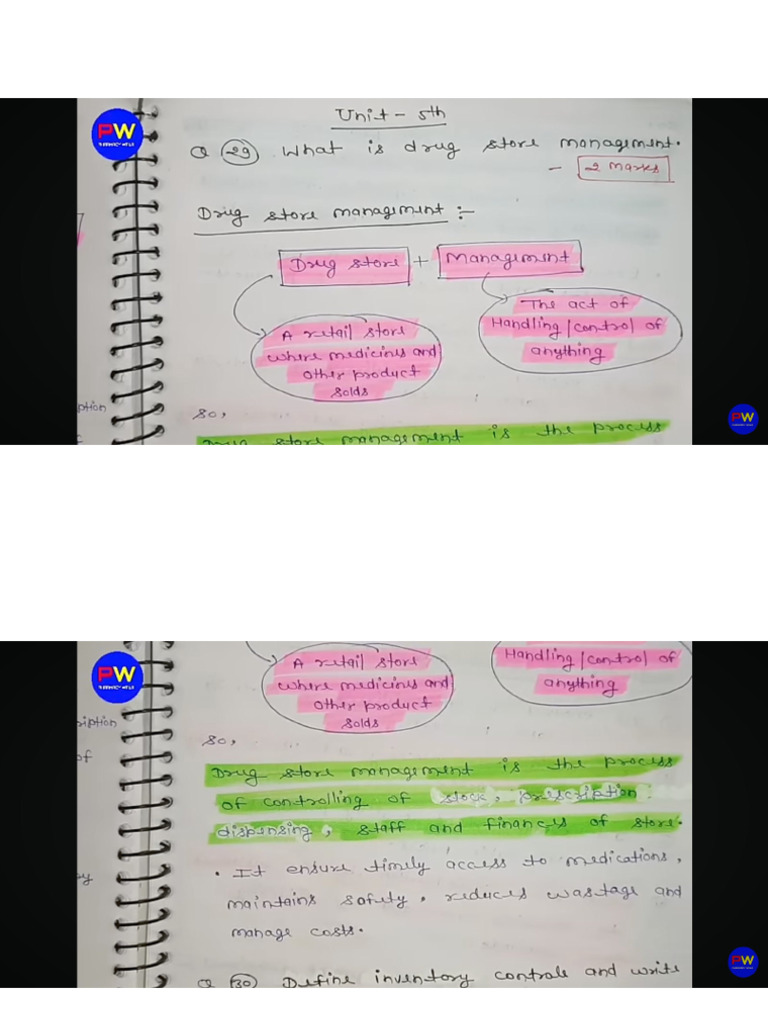 Unit - 5th
PW
Q 29 What is drug store management.
- 2 Marks
Drug store management :-
Drug store + Management
A retail store
where medicines and
other product
solds
The act of
Handling/control of
anything
ption
So,
Drug store management is the process
PW
A retail store
where medicines and
other product
solds
Handling/control of
anything
PW
ription
of
So,
Drug store management is the process
of controlling of stock, prescription
dispensing, staff and finances of store.
• It ensure timely access to medications,
maintains safety. reduces wastage and
manage costs.
Q 30 Define inventory controls and write
PW